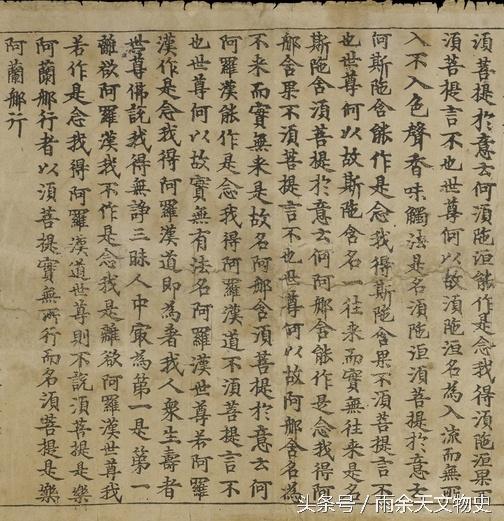 須菩提於意云何須陁洹能作是念我得須陁洹果不
須菩提言不也世尊何以故須陁洹名為入流而無所
入不入色聲香味觸法是名須陁洹須菩提於意云
何斯陁含能作是念我得斯陁含果不須菩提言不
也世尊何以故斯陁含名一往來而實無往來是名
斯陁含須菩提於意云何阿那含能作是念我得阿
那含果不須菩提言不也世尊何以故阿那含名為
不来而實無来是故名阿那含須菩提於意云何
阿羅漢能作是念我得阿羅漢道不須菩提言不
也世尊何以故實無有法名阿羅漢世尊若阿羅
漢作是念我得阿羅漢道即為著我人衆生壽者
世尊佛說我得無諍三昧人中冣為第一是第一
離欲阿羅漢我不作是念我是離欲阿羅漢世尊我
若作是念我得阿羅漢道世尊則不說須菩提是樂
阿蘭那行者以須菩提實無所行而名須菩提是樂
阿蘭那行
头条号／雨余天文物史